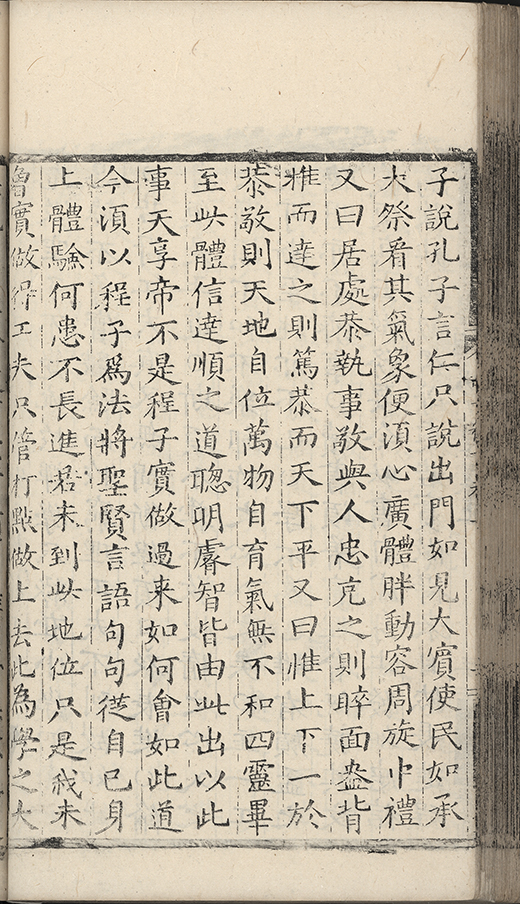 子說孔子言仁只說出門如見大賓使民如承
大祭看其氣象便湏心廣體胖動容周旋中禮
又曰居處恭執事敬與人忠克之則睟面盎背
推而達之則篤恭而天下平又曰惟上下一於
恭敬則天地自位萬物自育氣無不和四靈畢
至此體信達順之道聰明睿智皆由此出以此
事天享帝不是程子實做過来如何會如此道
今湏以程子爲法將聖賢言語句句從自己身
上體驗何患不長進若未到此地位只是我未
曾實做得工夫只管打點做上去此為學之大